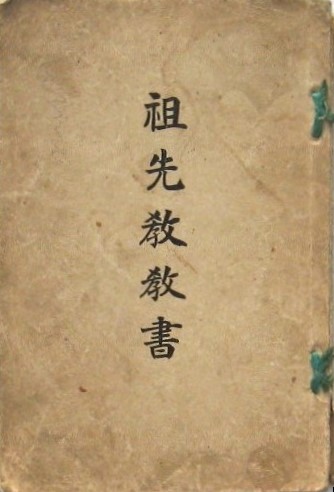 祖先敎敎書